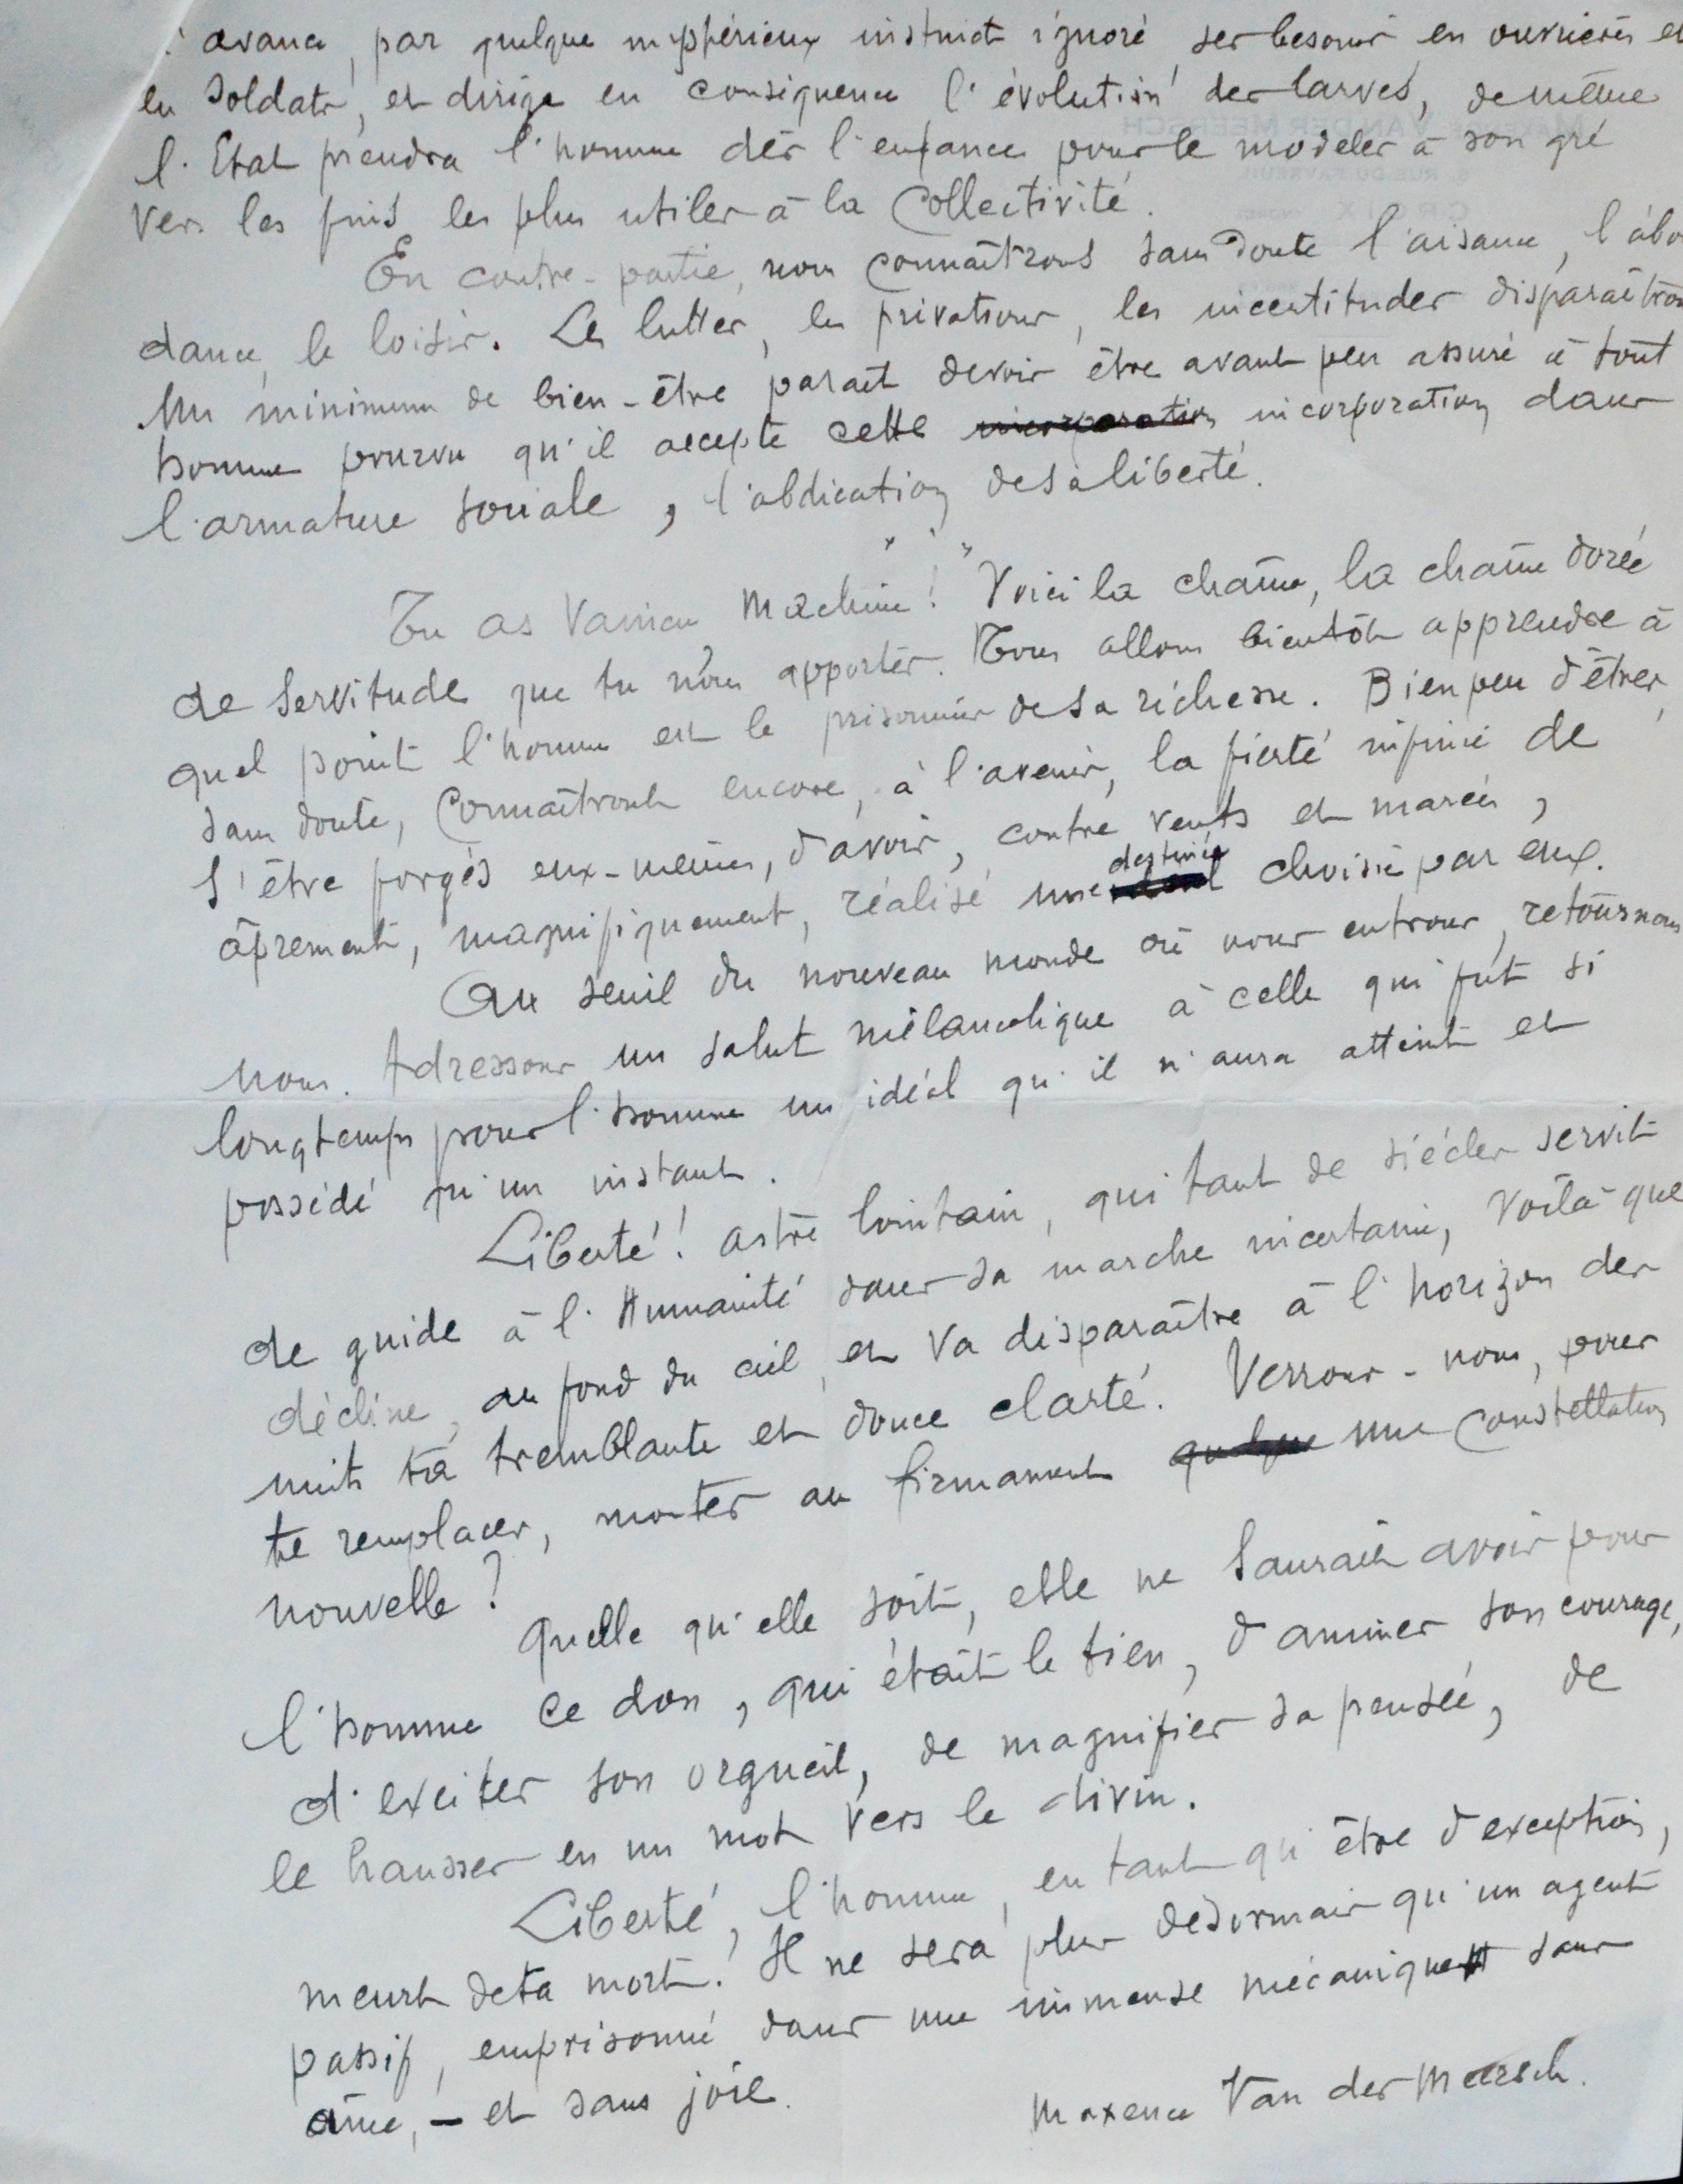 avance, par quelque mystérieux instinct ignoré ses besoins en ouvrières et
en soldats, et dirige en conséquence l'évolution des larves, de même
l'Etat prendra l'homme dès l'enfance pour le modeler à son gré
vers les fins les plus utiles à la Collectivité.
En contre-partie, nous connaîtrons sans doute l'aisance, l'abon
dance, le loisir. Les luttes, les privations, les incertitudes disparaîtron
Un minimum de bien-être paraît devoir être avant peu assuré à tout
homme pourvu qu'il accepte cette incorporation incorporation dans
l'armature sociale, l'abdication de sa liberté.
Tu as vaincu, Machine! Voici la chaîne, la chaîne dorée
de servitude que tu nous apportes. Nous allons bientôt apprendre à
quel point l'homme est le prisonnier de sa richesse. Bien peu d'êtres,
sans doute, connaîtront encore, à l'avenir, la fierté infinie de
s'être forgés eux-mêmes, d'avoir, contre vents et marées,
destinée
âprement, magnifiquement, réalisé une choisie par eux.
Au seuil du nouveau monde où nous entrons, retournons
nous. Adressons un salut mélancolique à celle qui fut si
longtemps pour l'homme un idéal qu'il n'aura atteint et
possédé qu'un instant.
Liberté! astre lointain, qui tant de siècles servit
de guide à l'Humanité dans sa marche incertaine, voilà que
décline, au fond du ciel, et va disparaître à l'horizon des
nuits ta tremblante et douce clarté. Verrons-nous, pour
te remplacer, monter au firmament quelque une constellation
nouvelle?
Quelle qu'elle soit, elle ne saurait avoir pour
l'homme ce don, qui était le tien, d'animer son courage,
d'exciter son orgueil, de magnifier sa pensée, de
le hausser en un mot vers le divin.
Liberté, l'homme, en tant qu'être d'exception,
meurt de ta mort! Il ne sera plus désormais qu'un agent
passif, emprisonné dans une immense mécanique sans
âme, – et sans joie.
Maxence Van der Meersch.